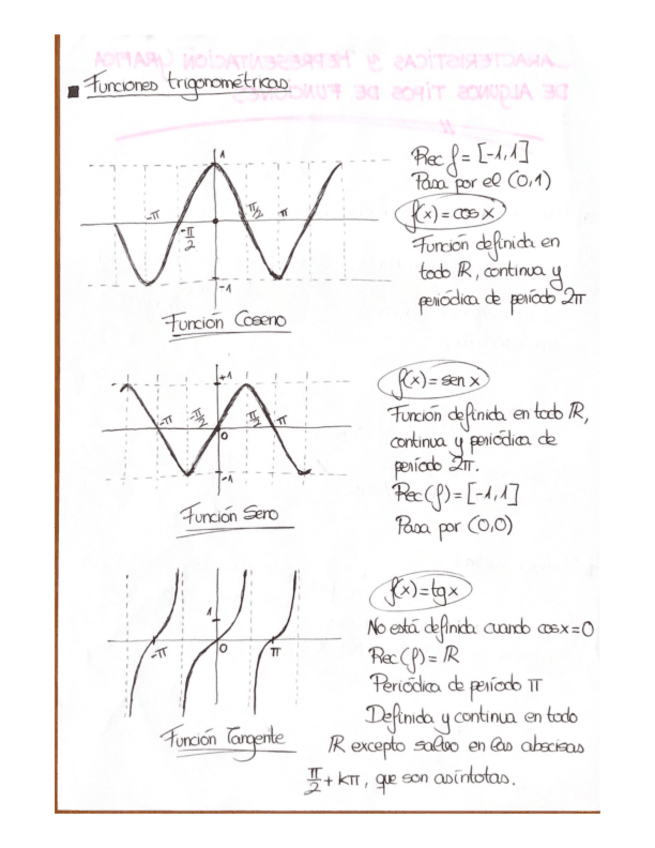 CARACTERÍSTICAS Y REPRESENTACIÓN GRÁFICA
DE ALGUNOS TIPOS DE FUNCIONES
Funciones trigonométricas
1
-π
-π/2
π/2
π
-1
Función Coseno
Rec f = [-1,1]
Pasa por el (0,1)
f(x) = cos x
Función definida en
todo ℝ, continua y
periódica de período 2π
+1
-π
-π/2
0
π/2
π
-1
Función Seno
f(x) = sen x
Función definida en todo ℝ,
continua y periódica de
período 2π.
Rec(f) = [-1,1]
Pasa por (0,0)
1
-π
0
π
Función Tangente
f(x) = tg x
No está definida cuando cos x = 0
Rec(f) = ℝ
Periódica de período π
Definida y continua en todo
ℝ excepto salvo en las abscisas
π/2 + kπ, que son asíntotas.